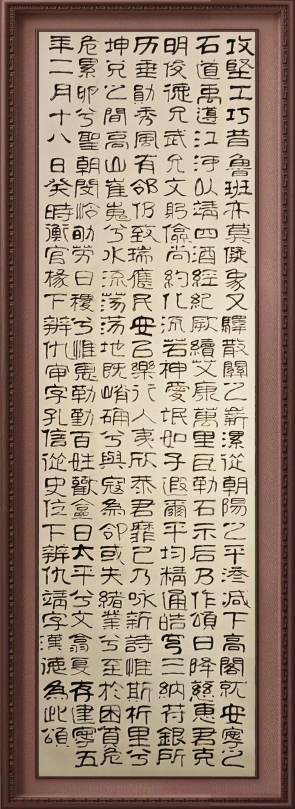 攻堅工巧昔魯班亦莫儗象又醳散關之嶄漯從朝陽之平澡減下高閣就安寧之
石道禹導江河以靖四海經紀厥續艾康萬里臣勒石示后乃作頌曰降慈惠君克
明俊德允武允文躬儉尚約化流若神愛氓如子遐邇平均精通皓穹三納苻銀所
历垂勛秀風有鄰仍致瑞應民安已樂行人夷欣恭君靡已乃咏新詩惟斯析里兮
坤兌之間高山崔嵬兮水流蕩蕩地既塉确兮與寇為鄰或失緒業兮至於困貧危
危累卵兮聖朝閔憐劬勞日稷兮惟惠勤勤百姓歡僉曰太平兮文翁复存建寧五
年二月十八日癸時衡官掾下辨仇审字孔信從史位下辨仇靖字漢德為此頌